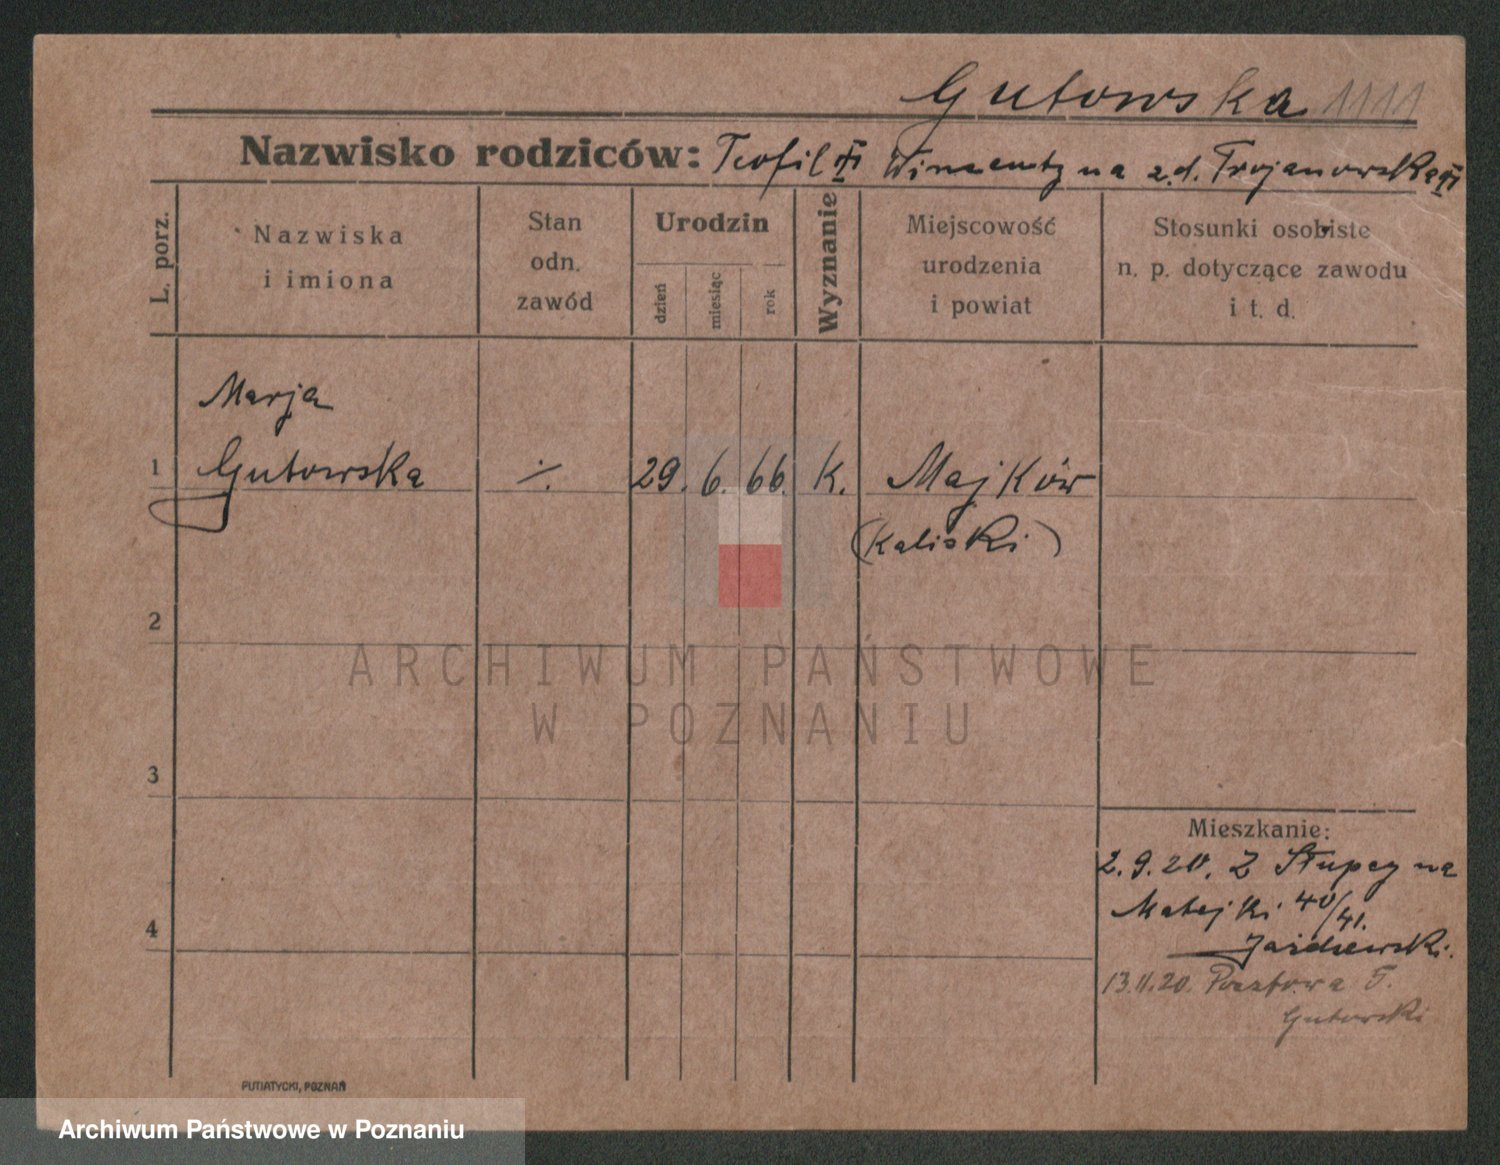 Gutowska 1111
Nazwisko rodziców: Teofil Wincentyna z.d. Trojanowska
L. porz.
Nazwiska
i imiona
Stan
odn.
zawód
Urodzin
dzień
miesiąc
rok
Wyznanie
Miejscowość
urodzenia
i powiat
Stosunki osobiste
n. p. dotyczące zawodu
i t. d.
Marja
1 Gutowska ·/. 29. 6. 66. K. Majków
(Kaliski)
2
ARCHIWUM PAŃSTWOWE
W POZNANIU
3
Mieszkanie:
2.9.20. Z Słupcy na
4 Matejki 40/41.
13.11.20. Pocztowa 7.
Gutowski
PUTIATYCKI, POZNAŃ
Archiwum Państwowe w Poznaniu